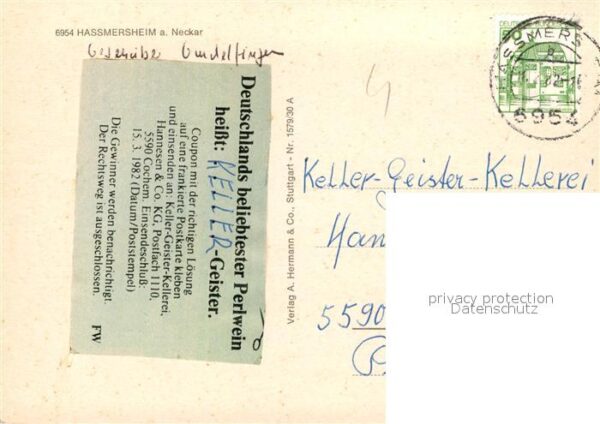 6954 HASSMERSHEIM a. Neckar
Deutschlands beliebtester Perlwein
heißt: KELLER-Geister.
Coupon mit der richtigen Lösung
auf eine frankierte Postkarte kleben
und einsenden an: Keller-Geister-Kellerei,
Hannesen & Co. KG, Postfach 1110,
5590 Cochem. Einsendeschluß:
15. 3. 1982 (Datum/Poststempel)
Die Gewinner werden benachrichtigt.
Der Rechtsweg ist ausgeschlossen. FW
Verlag A. Hermann & Co., Stuttgart - Nr. 1579/30 A
6954
Keller-Geister-Kellerei
Han
5590
privacy protection
Datenschutz